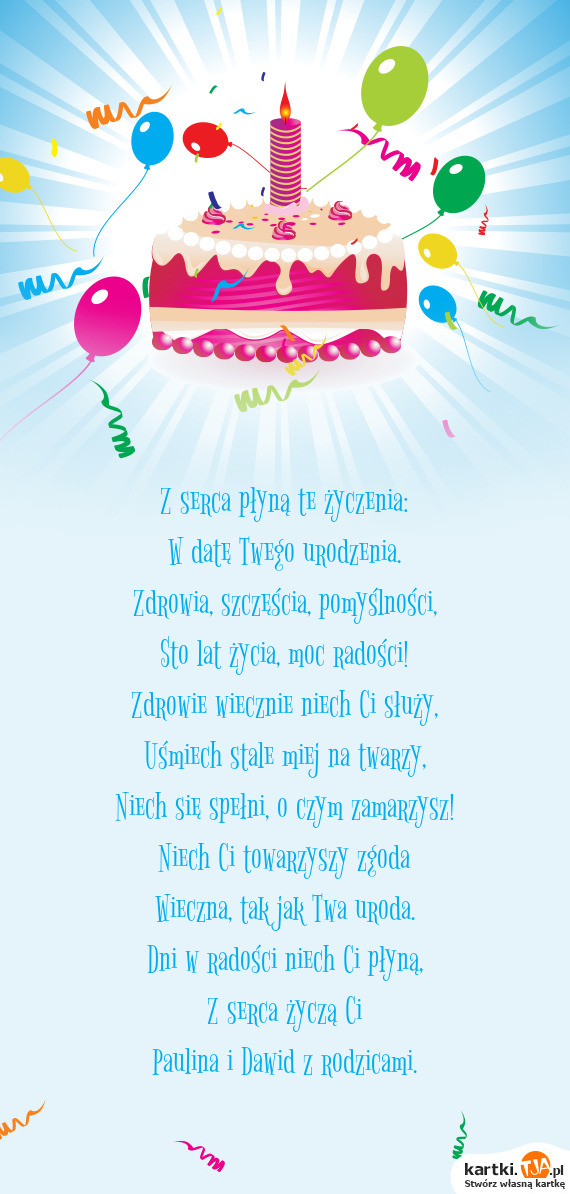 Z serca płyną te życzenia:
W datę Twego urodzenia.
Zdrowia, szczęścia, pomyślności,
Sto lat życia, moc radości!
Zdrowie wiecznie niech Ci służy,
Uśmiech stale miej na twarzy,
Niech się spełni, o czym zamarzysz!
Niech Ci towarzyszy zgoda
Wieczna, tak jak Twa uroda.
Dni w radości niech Ci płyną,
Z serca życzą Ci
Paulina i Dawid z rodzicami.
kartki.TJA.pl
Stwórz własną kartkę